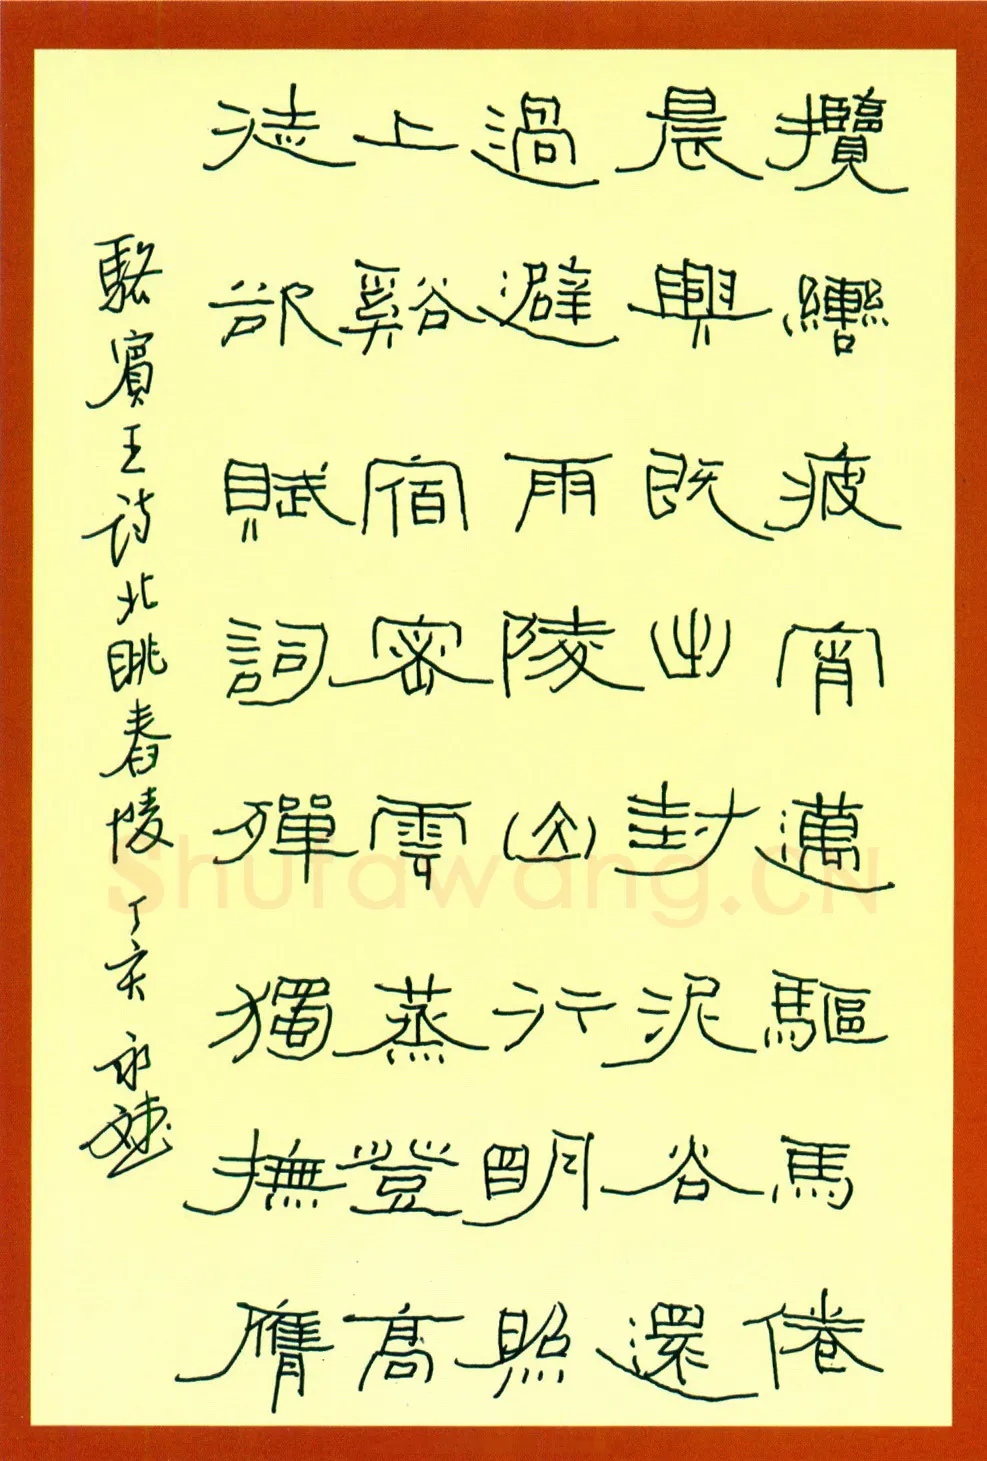 攬轡疲宵邁驅馬倦
晨興既出封泥谷還
過避雨陵山行明照
上谿宿密雲蒸登高
徒欲賦詞殫獨撫膺
駱賓王詩北眺春陵 丁亥 永
Shufawang.CN